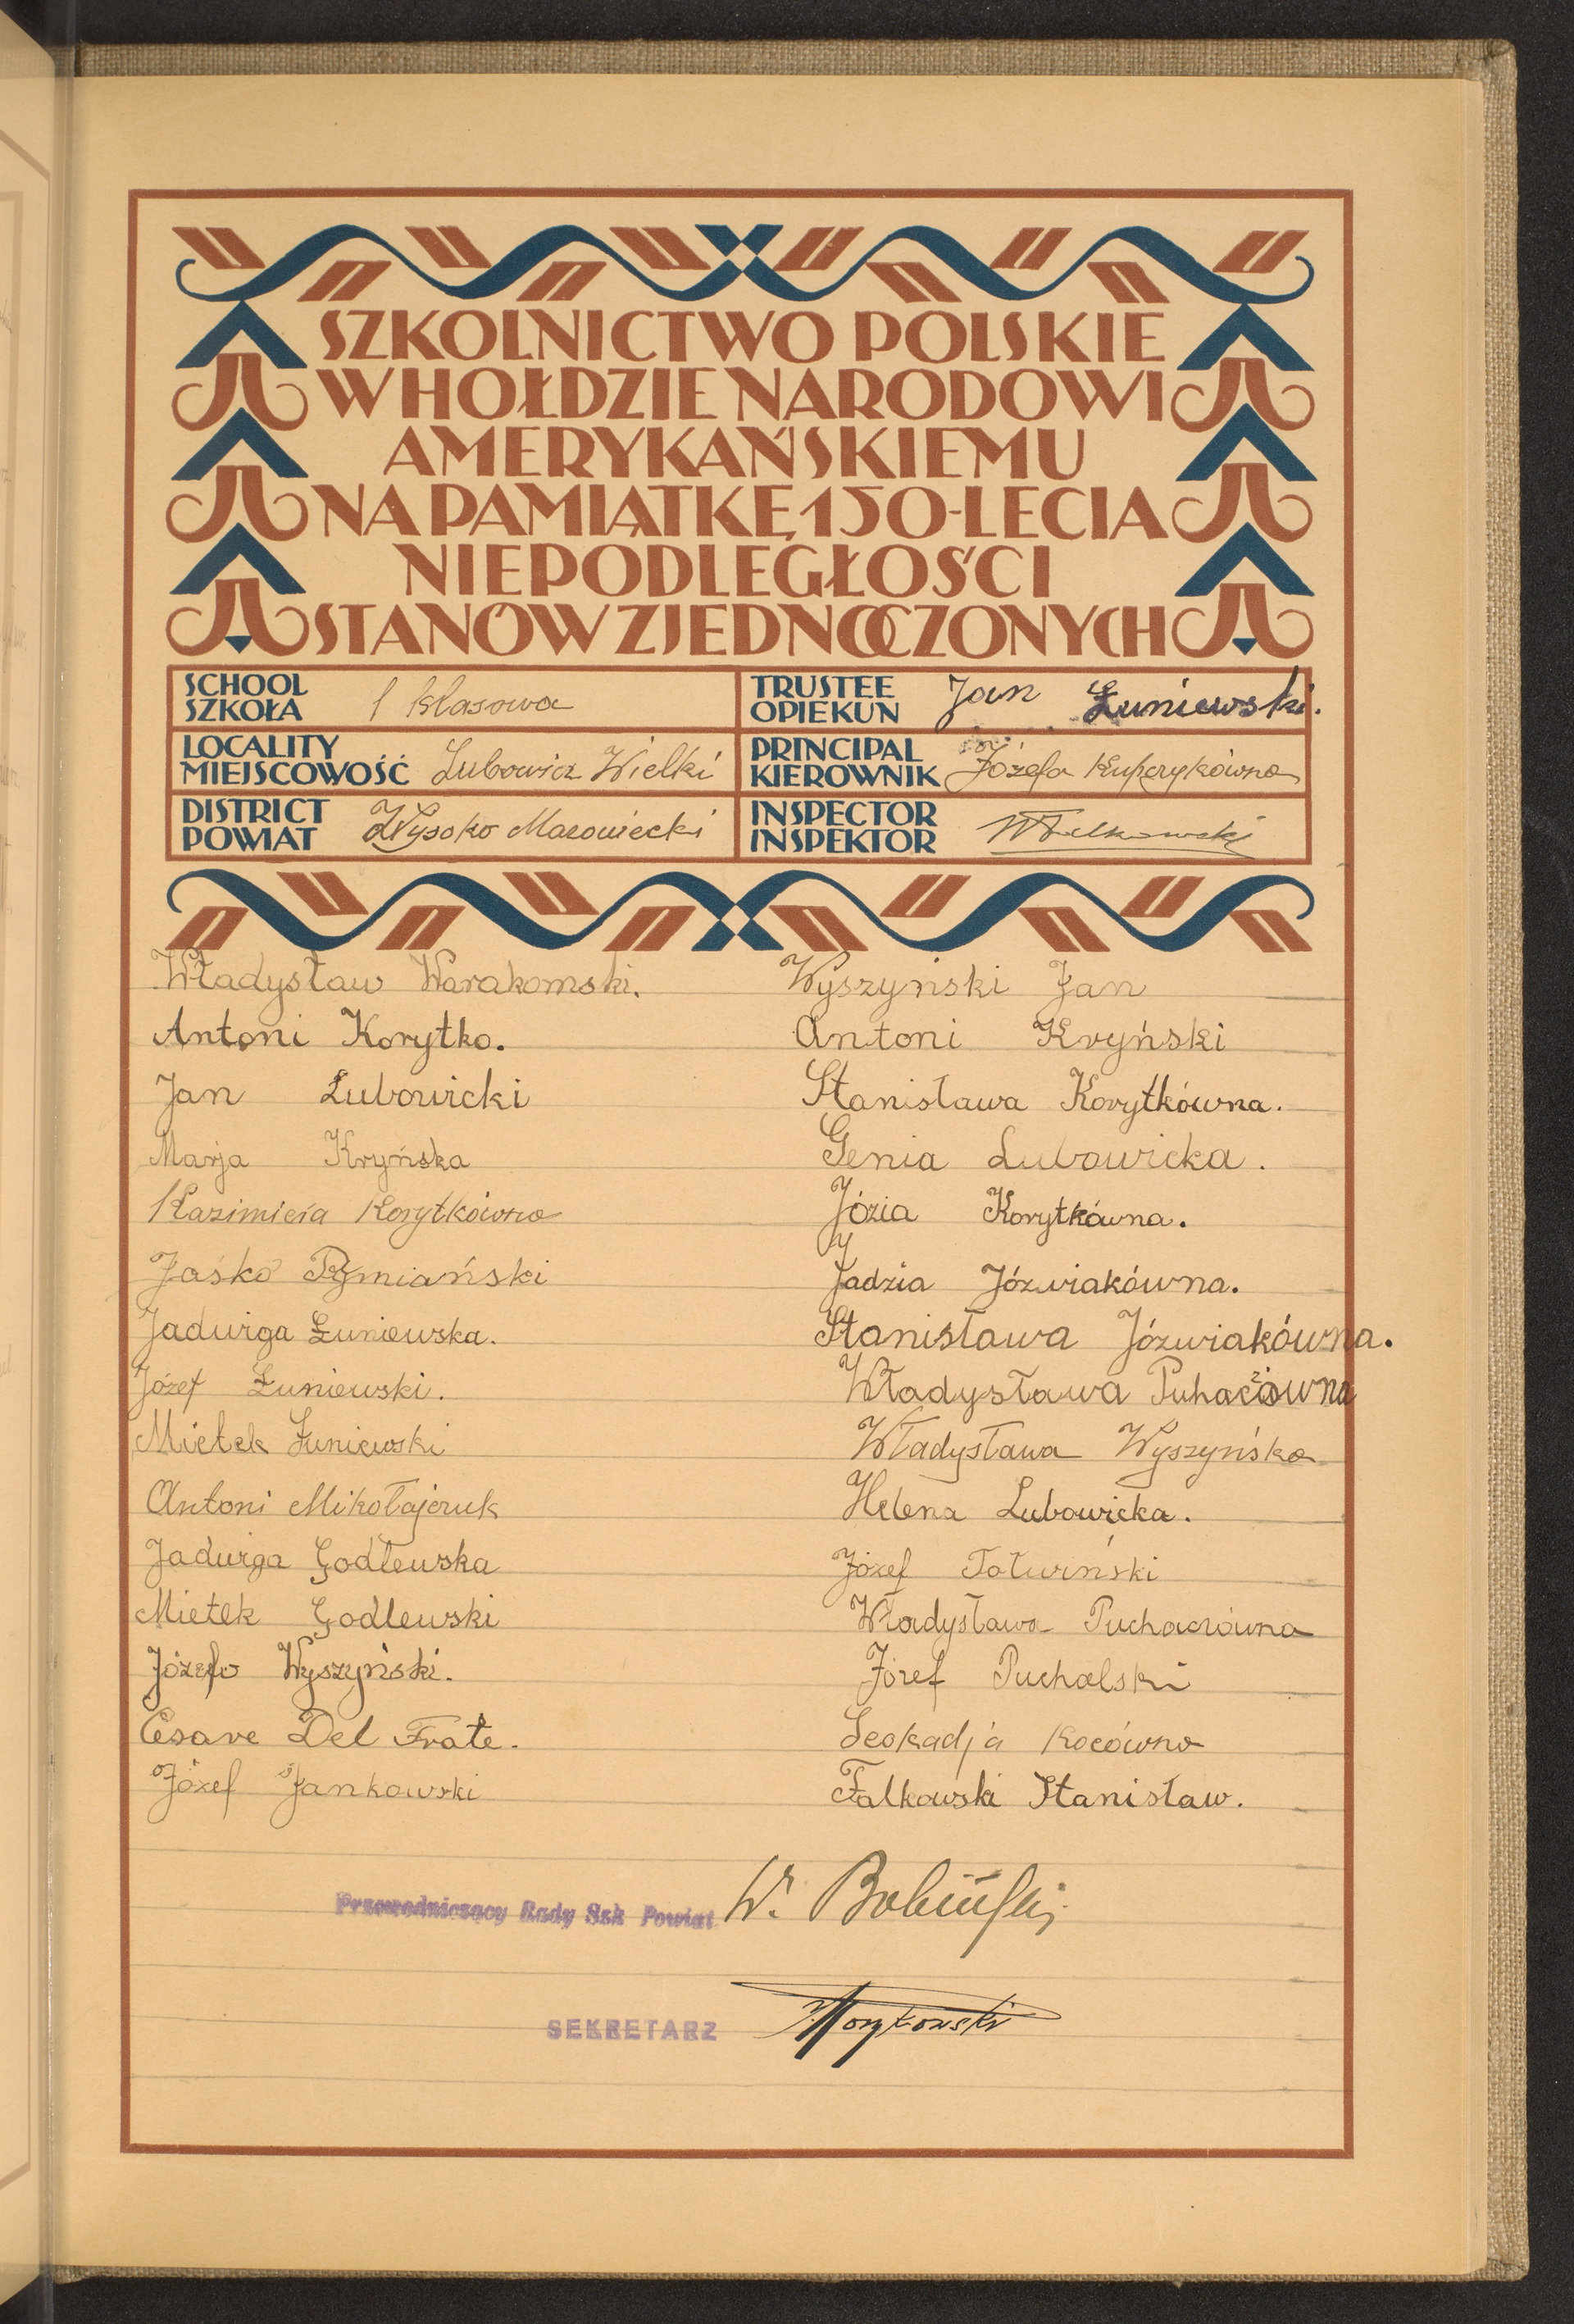 SZKOLNICTWO POLSKIE
W HOŁDZIE NARODOWI
AMERYKAŃSKIEMU
NA PAMIĄTKĘ 150-LECIA
NIEPODLEGŁOŚCI
STANÓW ZJEDNOCZONYCH
SCHOOL
SZKOŁA 1 klasowa
TRUSTEE
OPIEKUN Jan Łuniewski.
LOCALITY
MIEJSCOWOŚĆ Lubowicz Wielki
PRINCIPAL
KIEROWNIK Józefa Kupczykówna
DISTRICT
POWIAT Wysoko Mazowiecki
INSPECTOR
INSPEKTOR
Władysław Warakomski.
Antoni Korytko.
Jan Lubowicki
Marja Kryńska
Kazimiera Korytkówna
Jaśko Rymiański
Jadwiga Łuniewska.
Józef Łuniewski.
Mietek Łuniewski
Antoni Mikołajczuk
Jadwiga Godlewska
Mietek Godlewski
Józef Wyszyński.
Cesare Del Frate.
Józef Jankowski
Wyszyński Jan
Antoni Kryński
Stanisława Korytkówna.
Genia Lubowicka.
Józia Korytkówna.
Jadzia Józwiakówna.
Stanisława Józwiakówna.
Władysława
Władysława Wyszyńska
Helena Lubowicka.
Józef Tołwiński
Władysława Puchaczówna
Józef Puchalski
Leokadja Kocówna
Falkowski Stanisław.
Przewodniczący Rady Szk Powiat W. Bobiński
SEKRETARZ